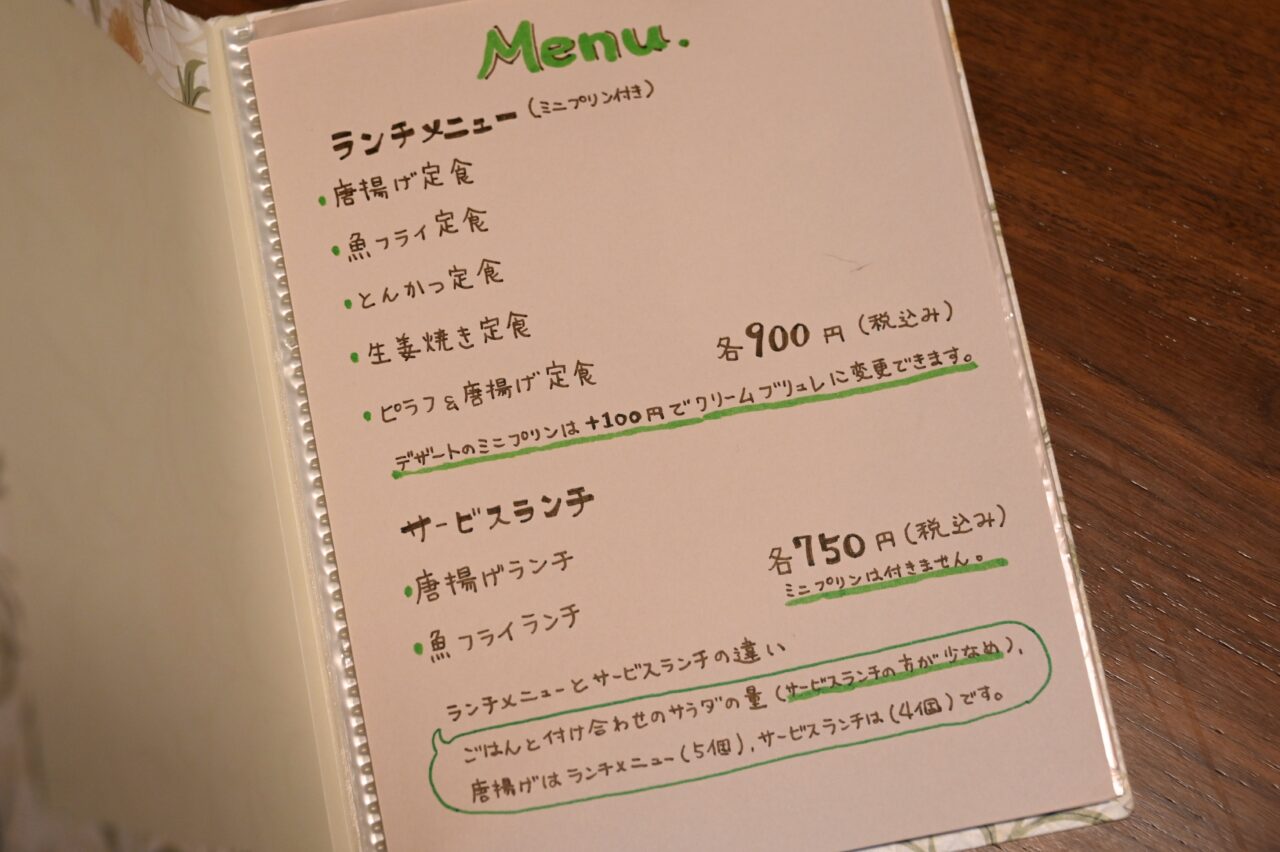 Menu.
ランチメニュー(ミニプリン付き)
・唐揚げ定食
・魚フライ定食
・とんかつ定食
・生姜焼き定食
・ピラフ&唐揚げ定食 各900円(税込み)
デザートのミニプリンは+100円でクリームブリュレに変更できます。
サービスランチ
・唐揚げランチ 各750円(税込み)
ミニプリンは付きません。
・魚フライランチ
ランチメニューとサービスランチの違い
ごはんと付け合わせのサラダの量(サービスランチの方が少なめ)、
唐揚げはランチメニュー(5個)、サービスランチは(4個)です。